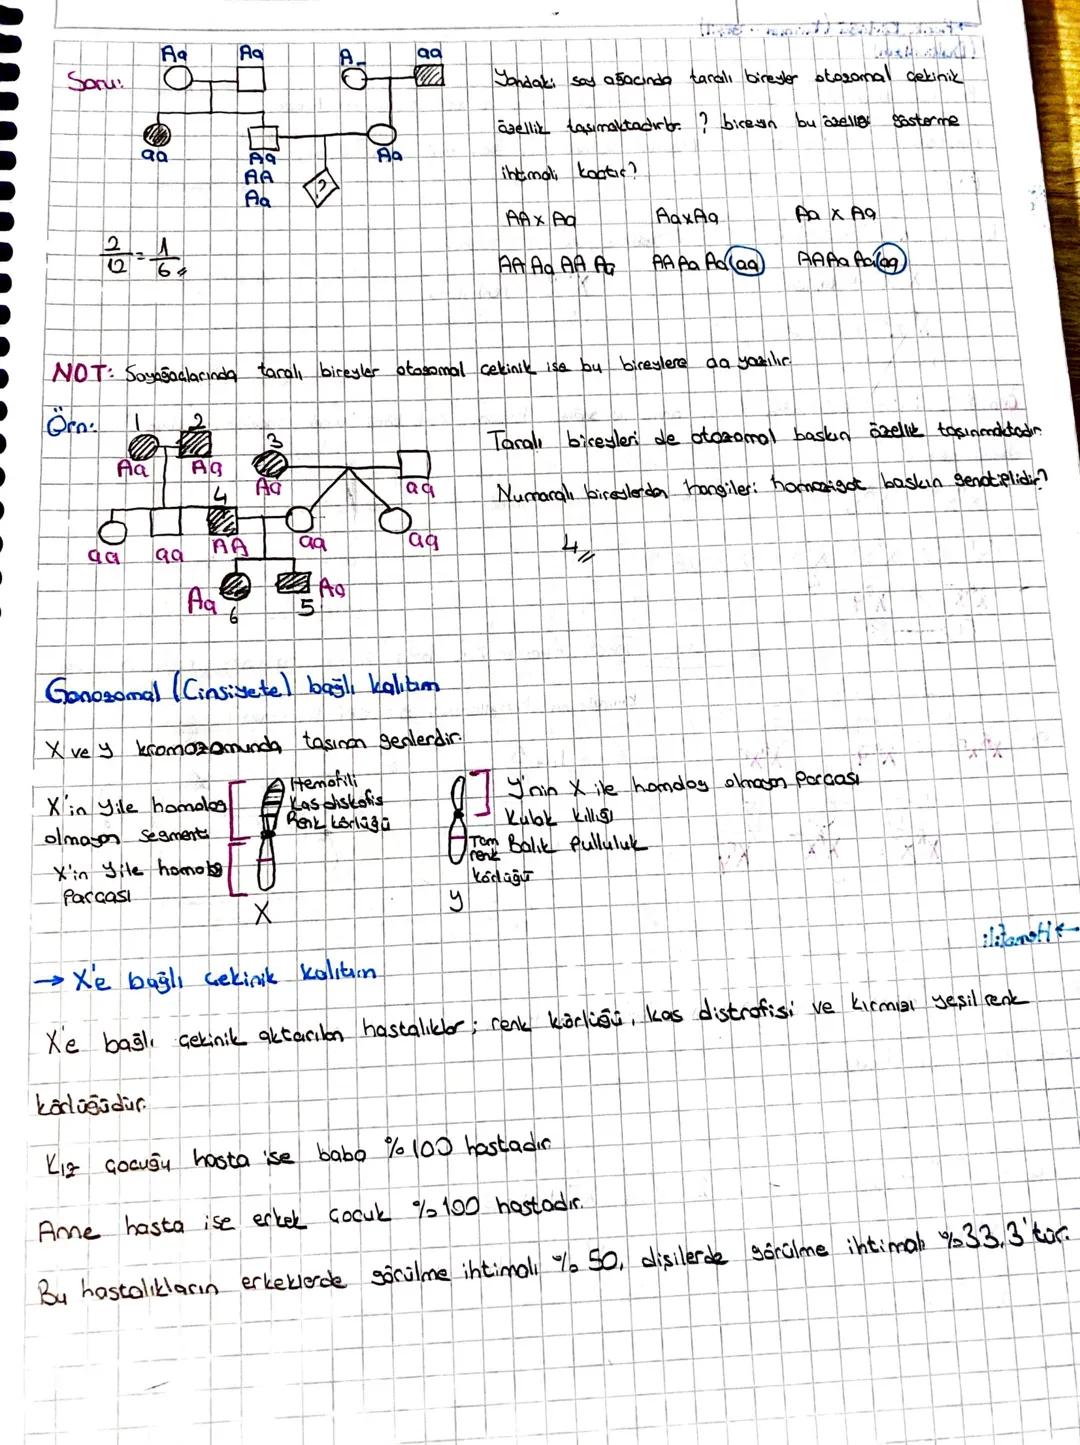 Soru:
Aa Aa A_ aa
Yandaki soy ağacında taralı bireyler otozomal çekinik
özellik taşımaktadır. ? bireyin bu özelliği gösterme
ihtimali kaçtır?
aa Aa ? Aa
AA
Aa
AA x Aa AaxAa Aa x Aa
2/12 = 1/6
AA Aa AA Aa AA Aa Aa aa AA Aa Aa aa
NOT: Soyağaçlarında taralı bireyler otozomal çekinik ise bu bireylere aa yazılır.
Örn:
1 2 3
Aa Aa Aa aa
Taralı bireyleri de otozomal baskın özellik taşınmaktadır.
Numaralı bireylerden hangileri homozigot baskın genotiplidir?
4
aa aa AA aa aa
4
Aa Aa
6 5
Gonozomal (Cinsiyete) bağlı kalıtım
X ve y kromozomunda taşınan genlerdir.
X'in Y ile homolog
olmayan segmenti
X'in Y ile homolog
Parçası
Hemofili
Kas diskofis
Renk körlüğü
X
Y'nin X ile homolog olmayan Parçası
Kulak kıllığı
Balık Pulluluk
Tam
renk
körlüğü
y
→ X'e bağlı çekinik kalıtım
X'e bağlı çekinik aktarılan hastalıklar; renk körlüğü, kas distrofisi ve kırmızı yeşil renk
körlüğüdür.
Kız çocuğu hasta ise baba %100 hastadır.
Anne hasta ise erkek çocuk %100 hastadır.
Bu hastalıkların erkeklerde görülme ihtimali %50, dişilerde görülme ihtimali %33,3'tür.